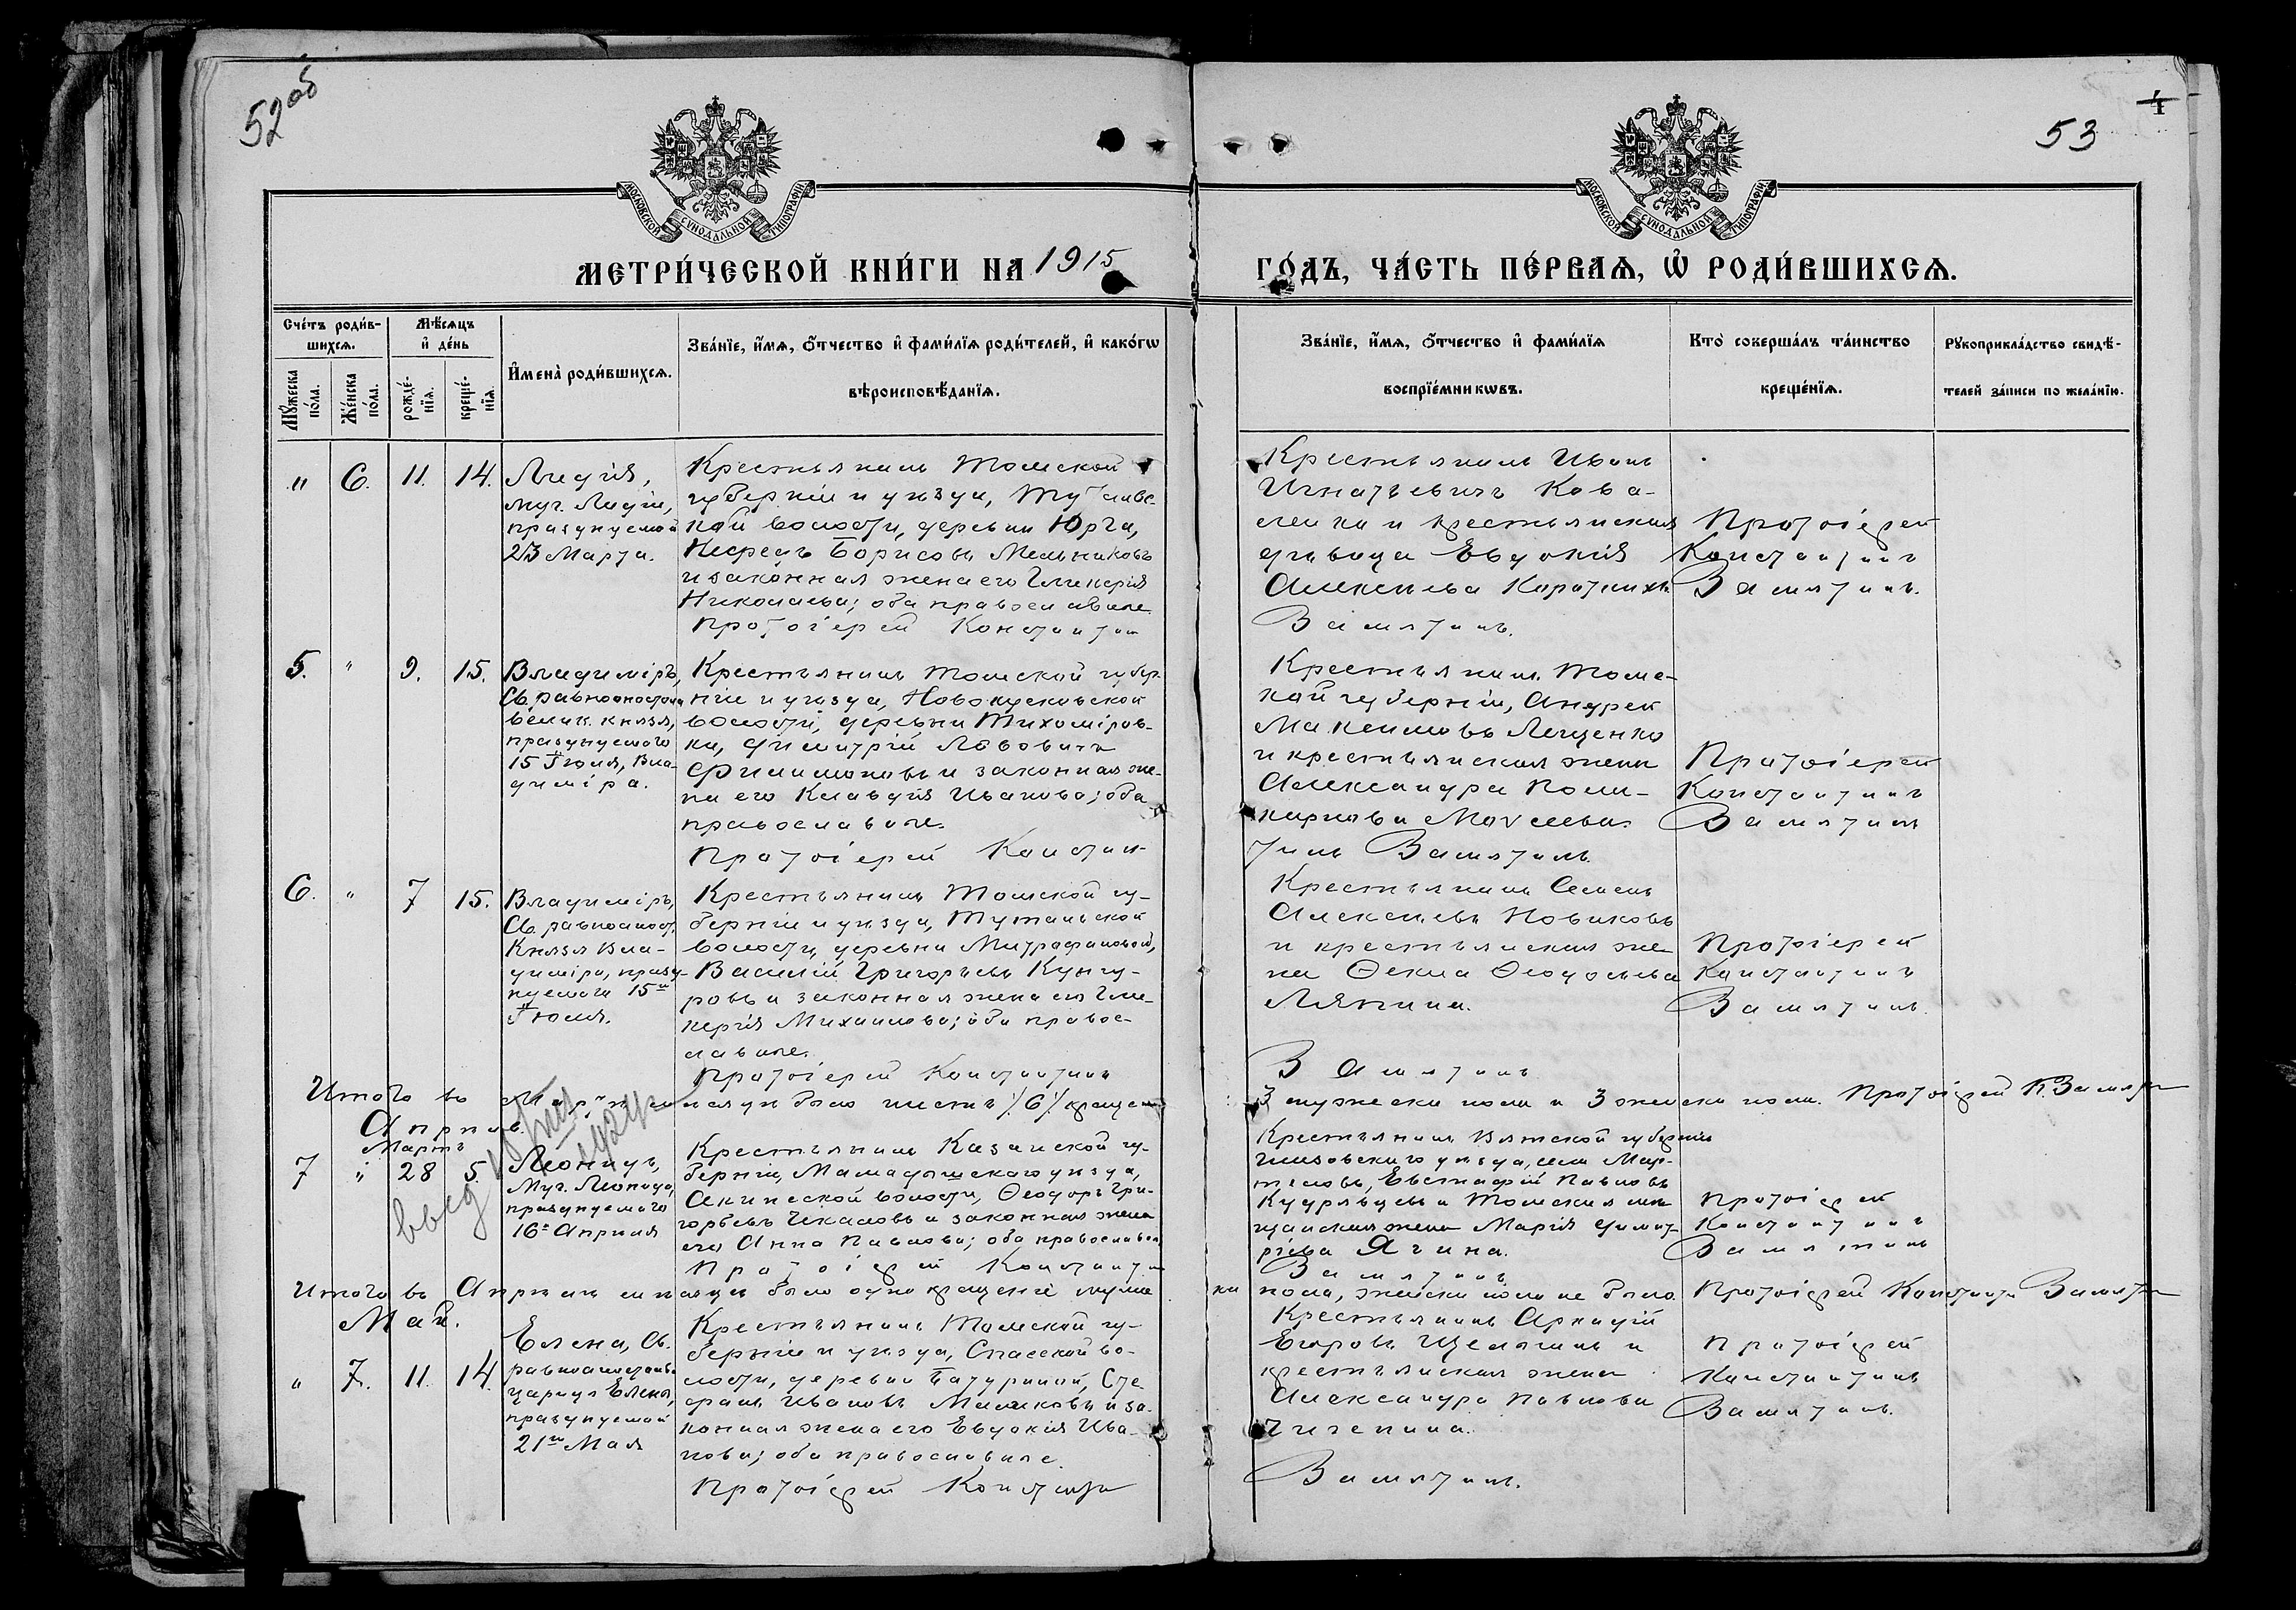 52 об
53
4
МОСКОВСКОЙ СѴНОДАЛЬНОЙ ТИПОГРАФІИ
МОСКОВСКОЙ СѴНОДАЛЬНОЙ ТИПОГРАФІИ
МЕТРИ́ЧЕСКОЙ КНИ́ГИ НА 1915
ГО́ДЪ, ЧА́СТЬ ПЕ́РВАѦ, Ѡ҆ РОДИ́ВШИХСѦ.
Сче́тъ роди́в-
шихсѧ.
Мꙋ́жеска
по́ла.
Же́нска
по́ла.
Мѣ́сѧцъ
и҆ де́нь
рожде́-
нїѧ.
креще́-
нїѧ.
И҆мена̀ роди́вшихсѧ.
Зва́нїе, и҆́мѧ, ѻ҆́тчество и҆ фами́лїѧ роди́телей, и҆ како́гѡ
вѣроисповѣ́данїѧ.
Зва́нїе, и҆́мѧ, ѻ҆́тчество и҆ фами́лїѧ
воспрїе́мникѡвъ.
Кто̀ соверша́лъ та́инство
креще́нїѧ.
Рꙋкоприкла́дство свидѣ́-
телей за́писи по жела́нїю.
" 6. 11. 14.
Лидія,
муч. Лидіи,
празднуемой
23 Марта.
Крестьянинъ Томской
губерніи и уѣзда, Тутальс-
кой волости, деревни Юрга,
Борисовъ Мельниковъ
и законная жена его Гликерія
Николаева; оба православные
Протоіерей Константин
Крестьянинъ Иванъ
Игнатьевичъ Кова-
ленко и крестьянская
дѣвица Евдокія
Алексѣева Короткихъ
Замятинъ.
Протоіерей
Константинъ
Замятинъ.
5. " 9. 15.
Владиміръ,
Св. равноапостольн
велик. князя,
празднуемого
15 Іюля, Вла-
диміра.
Крестьянинъ Томской губер-
ніи и уѣзда, Новокусковской
волости, деревни Тихоміров-
ки, Димитрій Львовичъ
Филимоновъ и законная же-
на его Клавдія Иванова; оба
православные.
Протоіерей Констан-
Крестьянинъ Томс-
кой губерніи, Андрей
Максимовъ Лещенко
и крестьянская жена
Александра Поли-
карпова Моисеева.
тинъ Замятинъ.
Протоіерей
Константинъ
Замятинъ
6. " 7 15.
Владиміръ,
Св. равноапост.
Князя Вла-
диміра, празд-
нуемаго 15го
Іюля.
Крестьянинъ Томской гу-
берніи и уѣзда, Тутальской
волости, деревни Митрофановой,
Василій Григорьевъ Кунгу-
ровъ и законная жена его Гли-
керія Михаилова; оба правос-
лавные.
Протоіерей Константинъ
Крестьянинъ Семенъ
Алексѣевъ Новиковъ
и крестьянская же-
на Ѳекла Ѳеодосьева
Ляпина.
Замятинъ
Протоіерей
Константинъ
Замятинъ.
Итого въ Мартѣ мѣсяцѣ было шесть /6/ крещеній
3 мужеска пола и 3 женска пола. Протоіерей К. Замятин
Апрѣль.
Мартъ
7 " 28 5.
Леонидъ,
Муч. Леонида,
празднуемого
16го Апрѣля
Крестьянинъ Казанской гу-
берніи, Мамадышскаго уѣзда,
волости, Ѳеодоръ Гри-
горьевъ Чекановъ и законная жена
его Анна Павлова; оба православн
Протоіерей Константин
Крестьянинъ Вятской губерніи
Глазовскаго уѣзда, села
Евстафій Павловъ
Кудрявцевъ и Томская мѣ-
щанская жена Марія Димит-
ріева Ягина.
Замятинъ
Протоіерей
Константинъ
Замятинъ
Итого въ Апрѣлѣ мѣсяцѣ было одно крещеніе мужес
ка пола, женска пола не было. Протоіерей Константин Замятин
Май.
" 7. 11. 14.
Елена, Св.
равноапостольн.
царицы Елены,
празднуемой
21го Мая
Крестьянинъ Томской гу-
берніи и уѣзда, Спасской во-
лости, деревни Батуриной, Сте-
фанъ Ивановъ и за-
конная жена его Евдокія Ива-
нова; оба православные.
Протоіерей Константин
Крестьянинъ Аркадій
Егоровъ и
крестьянская жена
Александра Павлова
Замятинъ.
Протоіерей
Константинъ
Замятинъ.